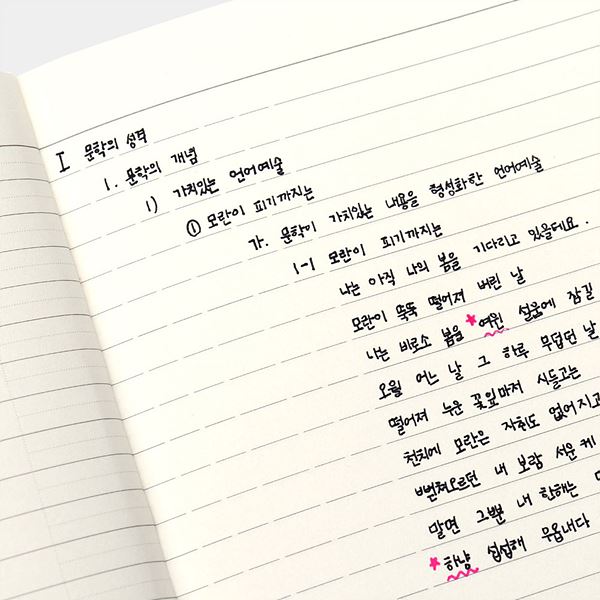 I 문학의 성격
1. 문학의 개념
1) 가치있는 언어예술
① 모란이 피기까지는
가. 문학이 가치있는 내용을 형성화한 언어예술
1-1 모란이 피기까지는
나는 아직 나의 봄을 기다리고 있을테요.
모란이 뚝뚝 떨어져 버린 날
나는 비로소 봄을 ★여윈 설움에 잠길
오월 어느 날 그 하루 무덥던 날
떨어져 누운 꽃잎마저 시들고는
천지에 모란은 자취도 없어지고
뻗쳐오르던 내 보람 서운케
말면 그뿐 내 한해는
★하냥 섭섭해 우옵내다